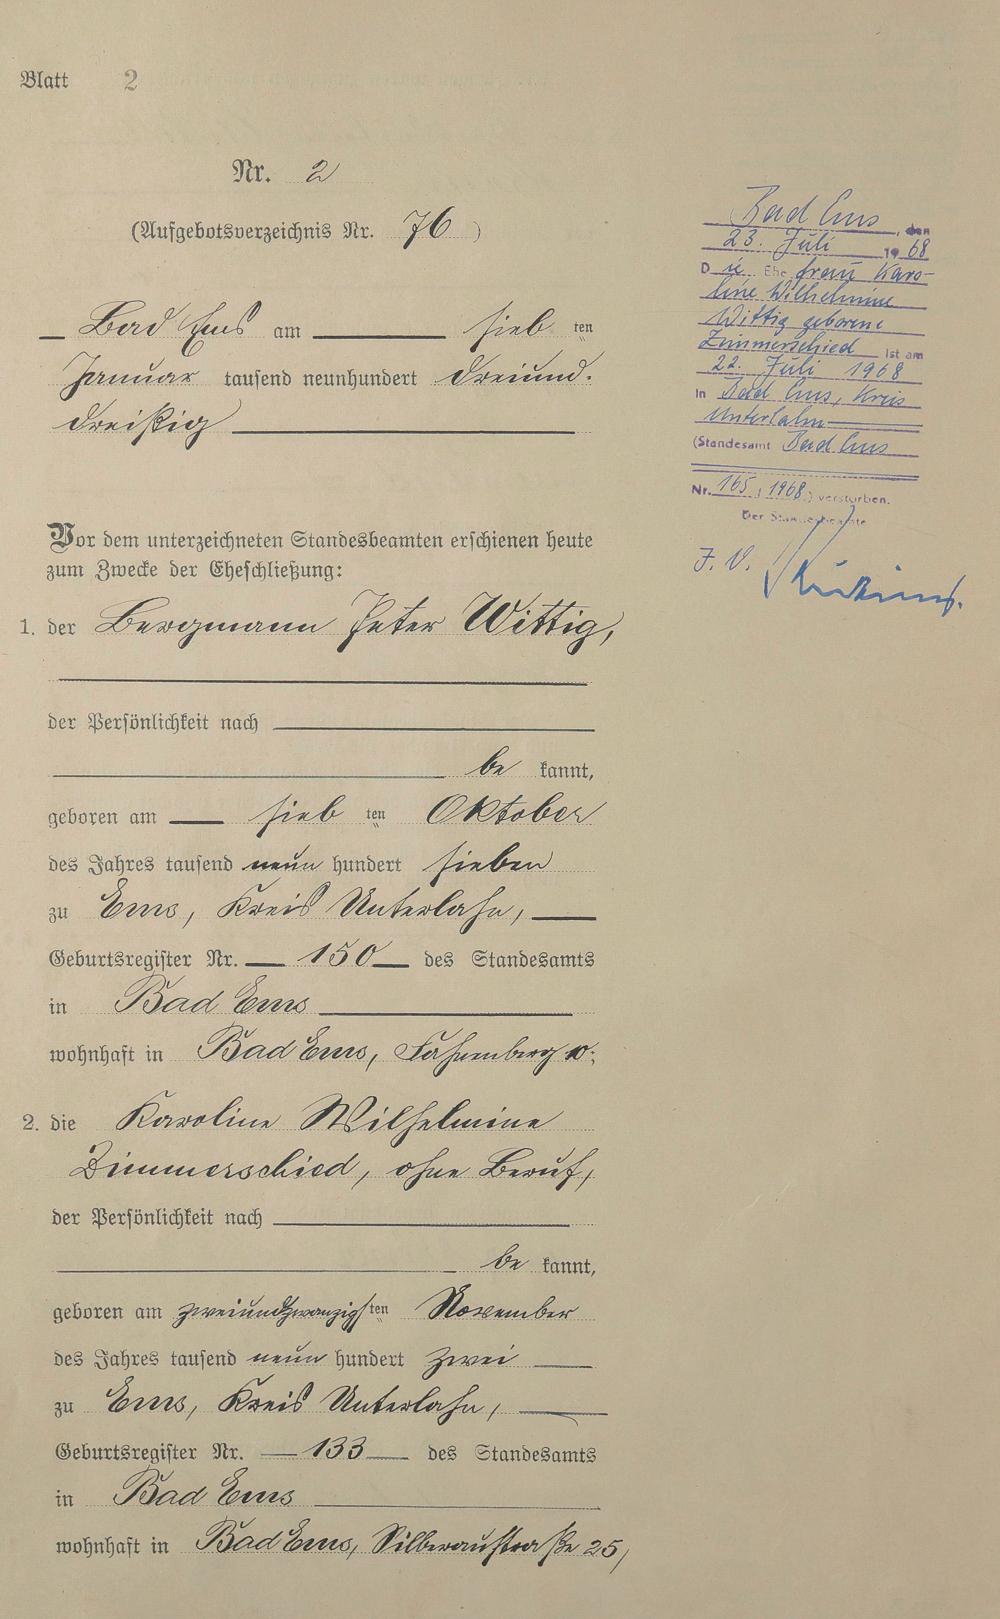 Blatt 2
Nr. 2
(Aufgebotsverzeichnis Nr. 76)
Bad Ems am sieb ten
Januar tausend neunhundert dreiund-
dreißig
Vor dem unterzeichneten Standesbeamten erschienen heute
zum Zwecke der Eheschließung:
1. der Bergmann Peter Wittig,
der Persönlichkeit nach
be kannt,
geboren am sieb ten Oktober
des Jahres tausend neun hundert sieben
zu Ems, Kreis Unterlahn,
Geburtsregister Nr. 150 des Standesamts
in Bad Ems
wohnhaft in Bad Ems, Fahnenberg 10;
2. die Karoline Wilhelmine
Zimmerschied, ohne Beruf,
der Persönlichkeit nach
be kannt,
geboren am zweiundzwanzigsten November
des Jahres tausend neun hundert zwei
zu Ems, Kreis Unterlahn,
Geburtsregister Nr. 133 des Standesamts
in Bad Ems
wohnhaft in Bad Ems, Silberaustraße 25,
Bad Ems, den
23. Juli 1968
Die Ehefrau Karo-
line Wilhelmine
Wittig geborene
Zimmerschied ist am
22. Juli 1968
in Bad Ems, Kreis
Unterlahn
(Standesamt Bad Ems
Nr. 165 / 1968) verstorben.
Der Standesbeamte
I. V.